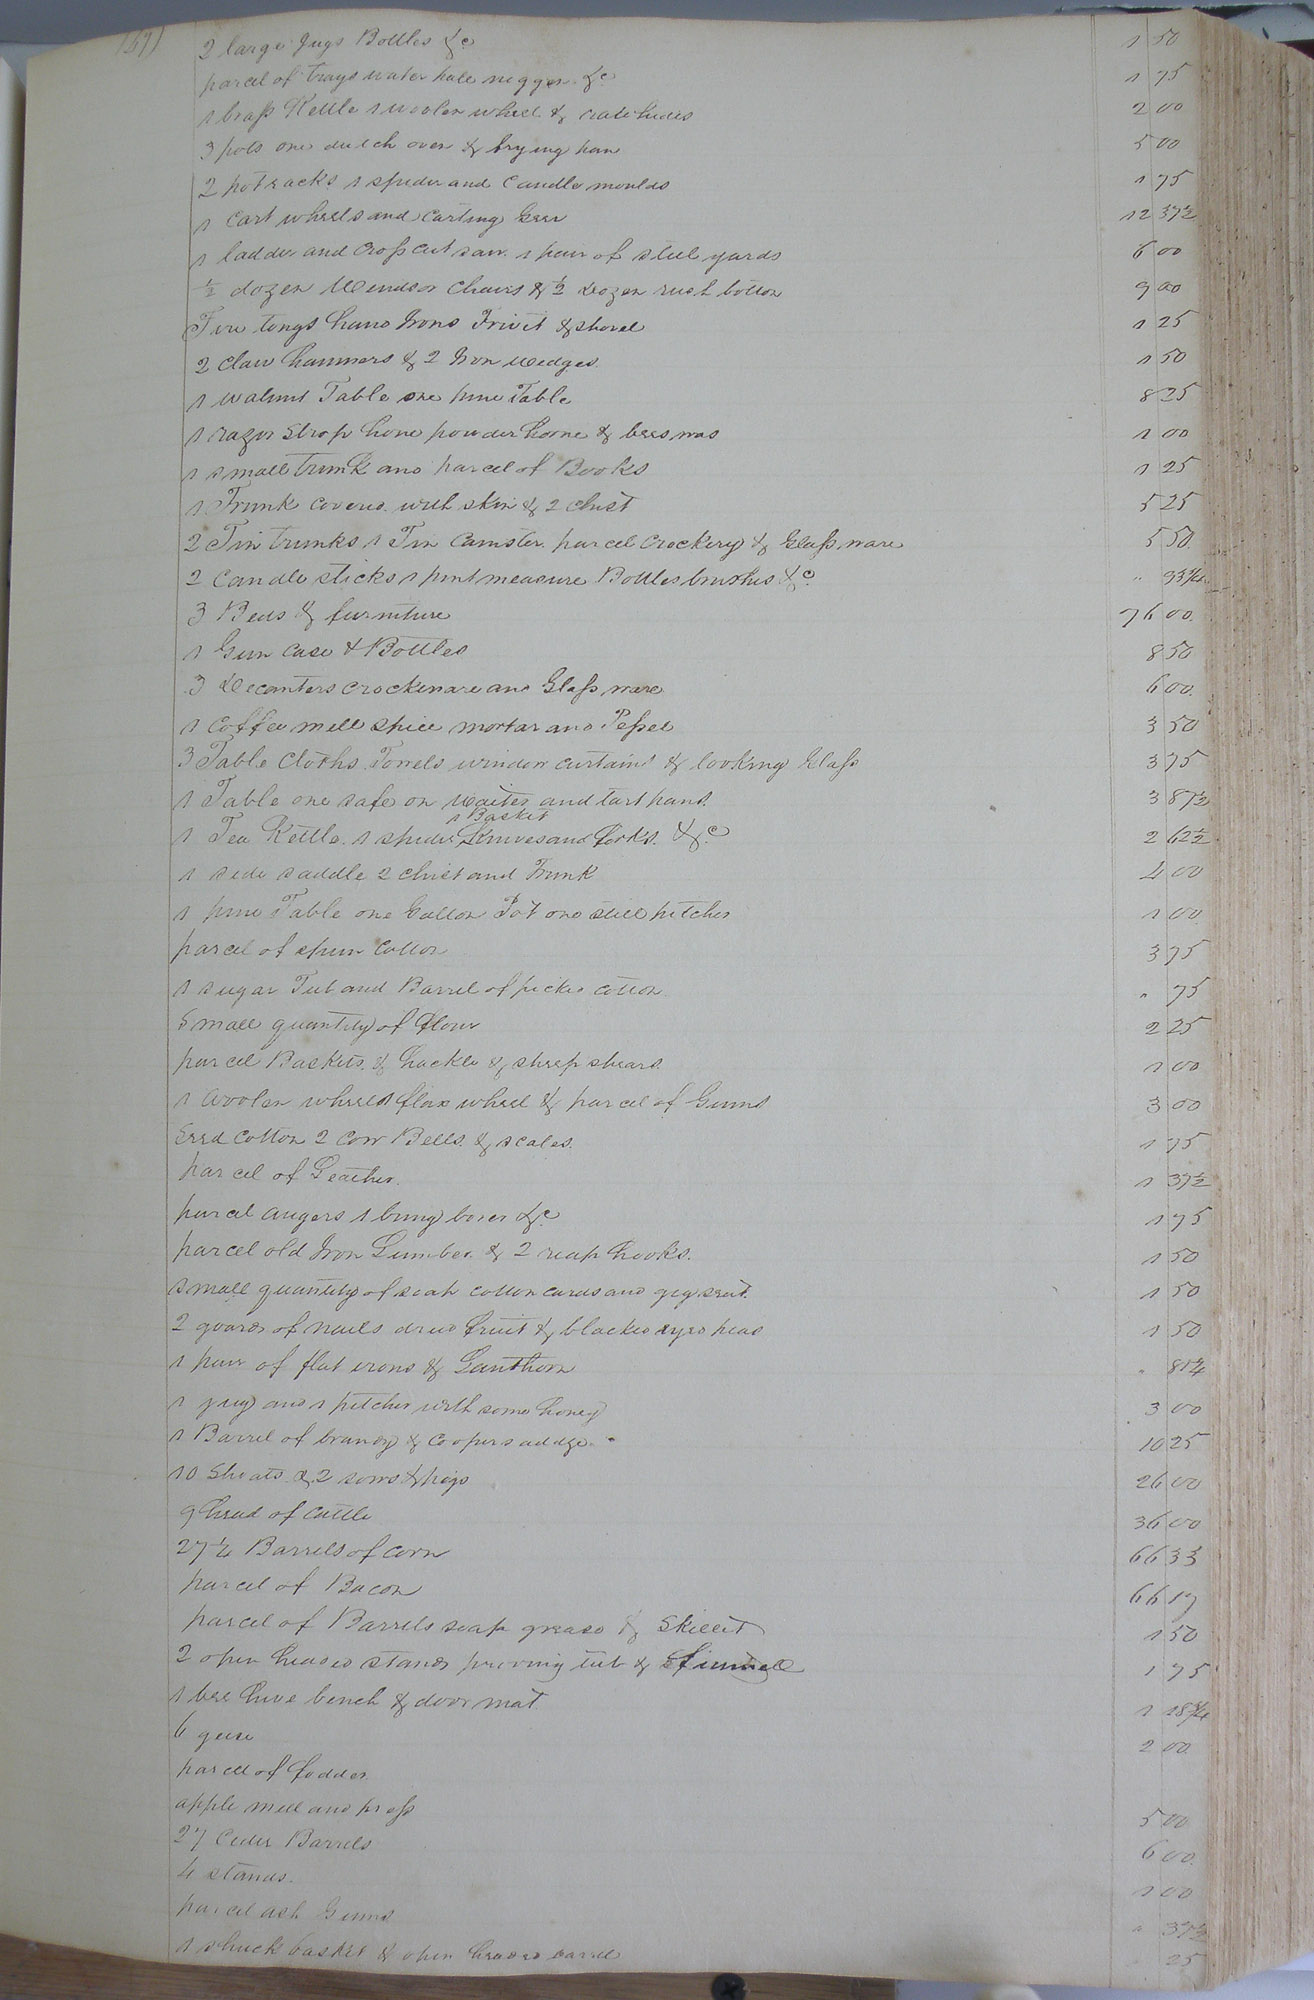 167)
2 large Jugs Bottles &c 1 50
parcel of Trays water pale &c 1 75
1 brass Kettle 1 woolen wheel & 2 00
3 pots one dutch oven & frying pan 5 00
2 potracks 1 spider and Candle moulds 1 75
1 Cart wheels and Carting Gear 12 37½
1 ladder and Cross cut saw 1 pair of steel yards 6 00
½ dozen Windsor Chairs & ½ dozen rush bottom 9 00
Fire tongs hand Irons Trivit & shovel 1 25
2 Claw hammers & 2 Iron wedges 1 50
1 walnut Table one pine Table 8 25
1 razor strop hone powder horne & bees wax 1 00
1 small trunk and parcel of Books 1 25
1 Trunk covered with skin & 2 Chist 5 25
2 Tin trunks 1 Tin Canister parcel Crockery & Glass ware 5 50
2 Candle sticks 1 pint measure Bottles brushes &c " 93¾
3 Beds & furniture 76 00
1 Gun Case & Bottles 8 50
3 Decanters crockeware and Glass ware 6 00
1 Coffee mill spice mortar and Pessel 3 50
3 Table Cloths Towels window curtains & looking Glass 3 75
1 Table one safe on waiter and tart pans 3 87½
1 Basket
1 Tea Kettle 1 spider Knives and Forks &c 2 62½
1 side saddle 2 chist and Trunk 4 00
1 pine Table one Gallon Pot one still pitcher 1 00
parcel of spun Cotton 3 75
1 sugar Tub and Barrel of picked cotton " 75
Small quantity of flour 2 25
parcel Baskets & hackle & sheep shears 1 00
1 Woolen wheel 1 flax wheel & parcel of Gums 3 00
Seed Cotton 2 Cow Bells & scales 1 75
parcel of Leather 1 37½
parcel augers 1 bung borer &c 1 75
parcel old Iron Lumber & 2 reap hooks 1 50
small quantity of soap cotton cards and gig seat 1 50
2 of nails dried fruit & blacked eyed peas 1 50
1 pair of flat irons & Lanthorn " 81¼
1 jug and 1 pitcher with some honey 3 00
1 Barrel of brandy & Coopers addze 10 25
10 Shoats & 2 sows & pigs 26 00
9 head of Cattle 36 00
27¼ Barrels of corn 66 33
parcel of Bacon 66 17
parcel of Barrels soap grease & Skillet 1 50
2 open headed stands tub & funnell 1 75
1 bee hive bench & door mat 1 18¾
6 geese 2 00
parcel of fodder
apple mill and press 5 00
27 Cider Barrels 6 00
4 stands 1 00
parcel ash Gums " 37½
1 shuck basket & open headed barrel " 25